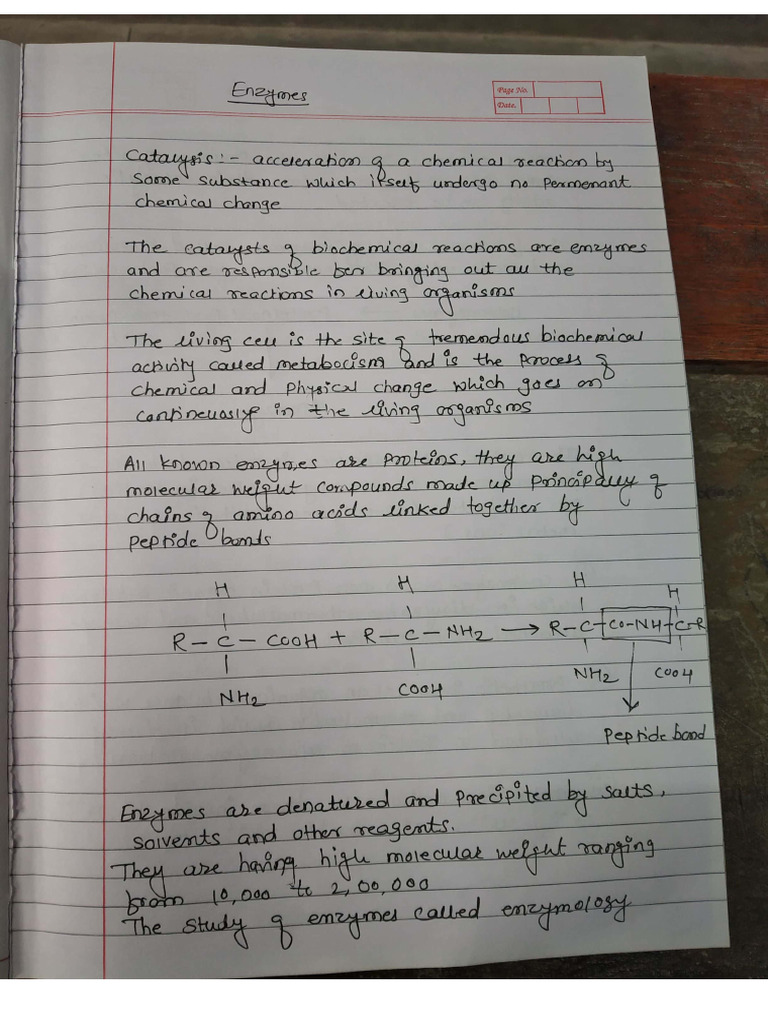 Enzymes
Page No.
Date.
Catalysis :- acceleration of a chemical reaction by
some substance which itself undergo no permenant
chemical change
The catalysts of biochemical reactions are enzymes
and are responsible for bringing out all the
chemical reactions in living organisms
The living cell is the site of tremendous biochemical
activity called metabolism and is the process of
chemical and physical change which goes on
continuously in the living organisms
All known enzymes are proteins, they are high
molecular weight compounds made up principally of
chains of amino acids linked together by
peptide bonds
H H H H
R – C – COOH + R – C – NH2 → R – C – CO – NH – C – R
NH2 COOH NH2 COOH
Peptide bond
Enzymes are denatured and precipited by salts,
solvents and other reagents.
They are having high molecular weight ranging
from 10,000 to 2,00,000
The study of enzymes called enzymology